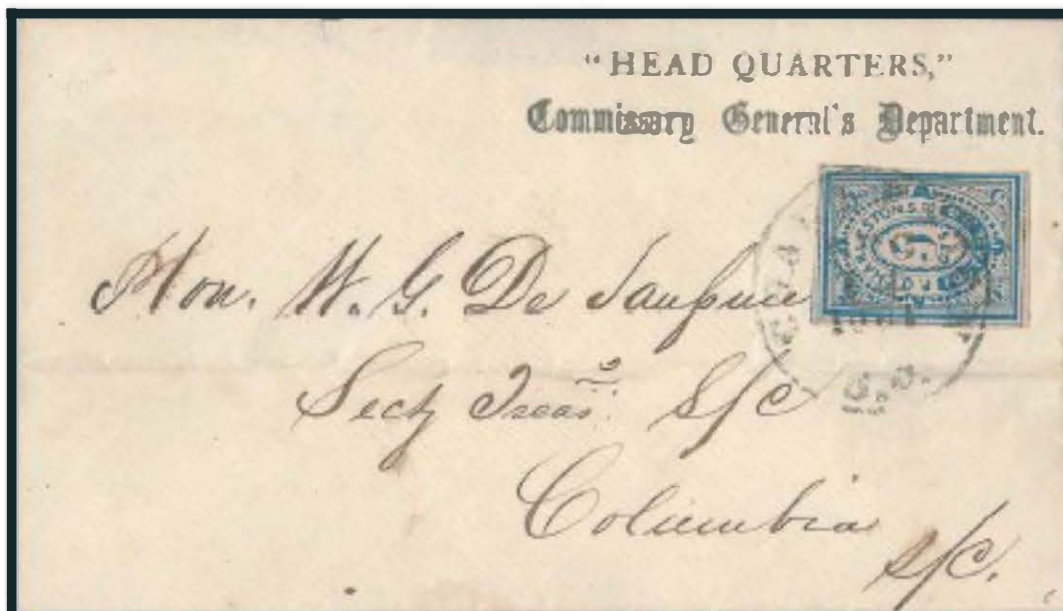 "HEAD QUARTERS,"
Commissary General's Department.
Hon. W. G. De Saussure
Secty Treas. S/C
Columbia
S/C.
5
S.C.